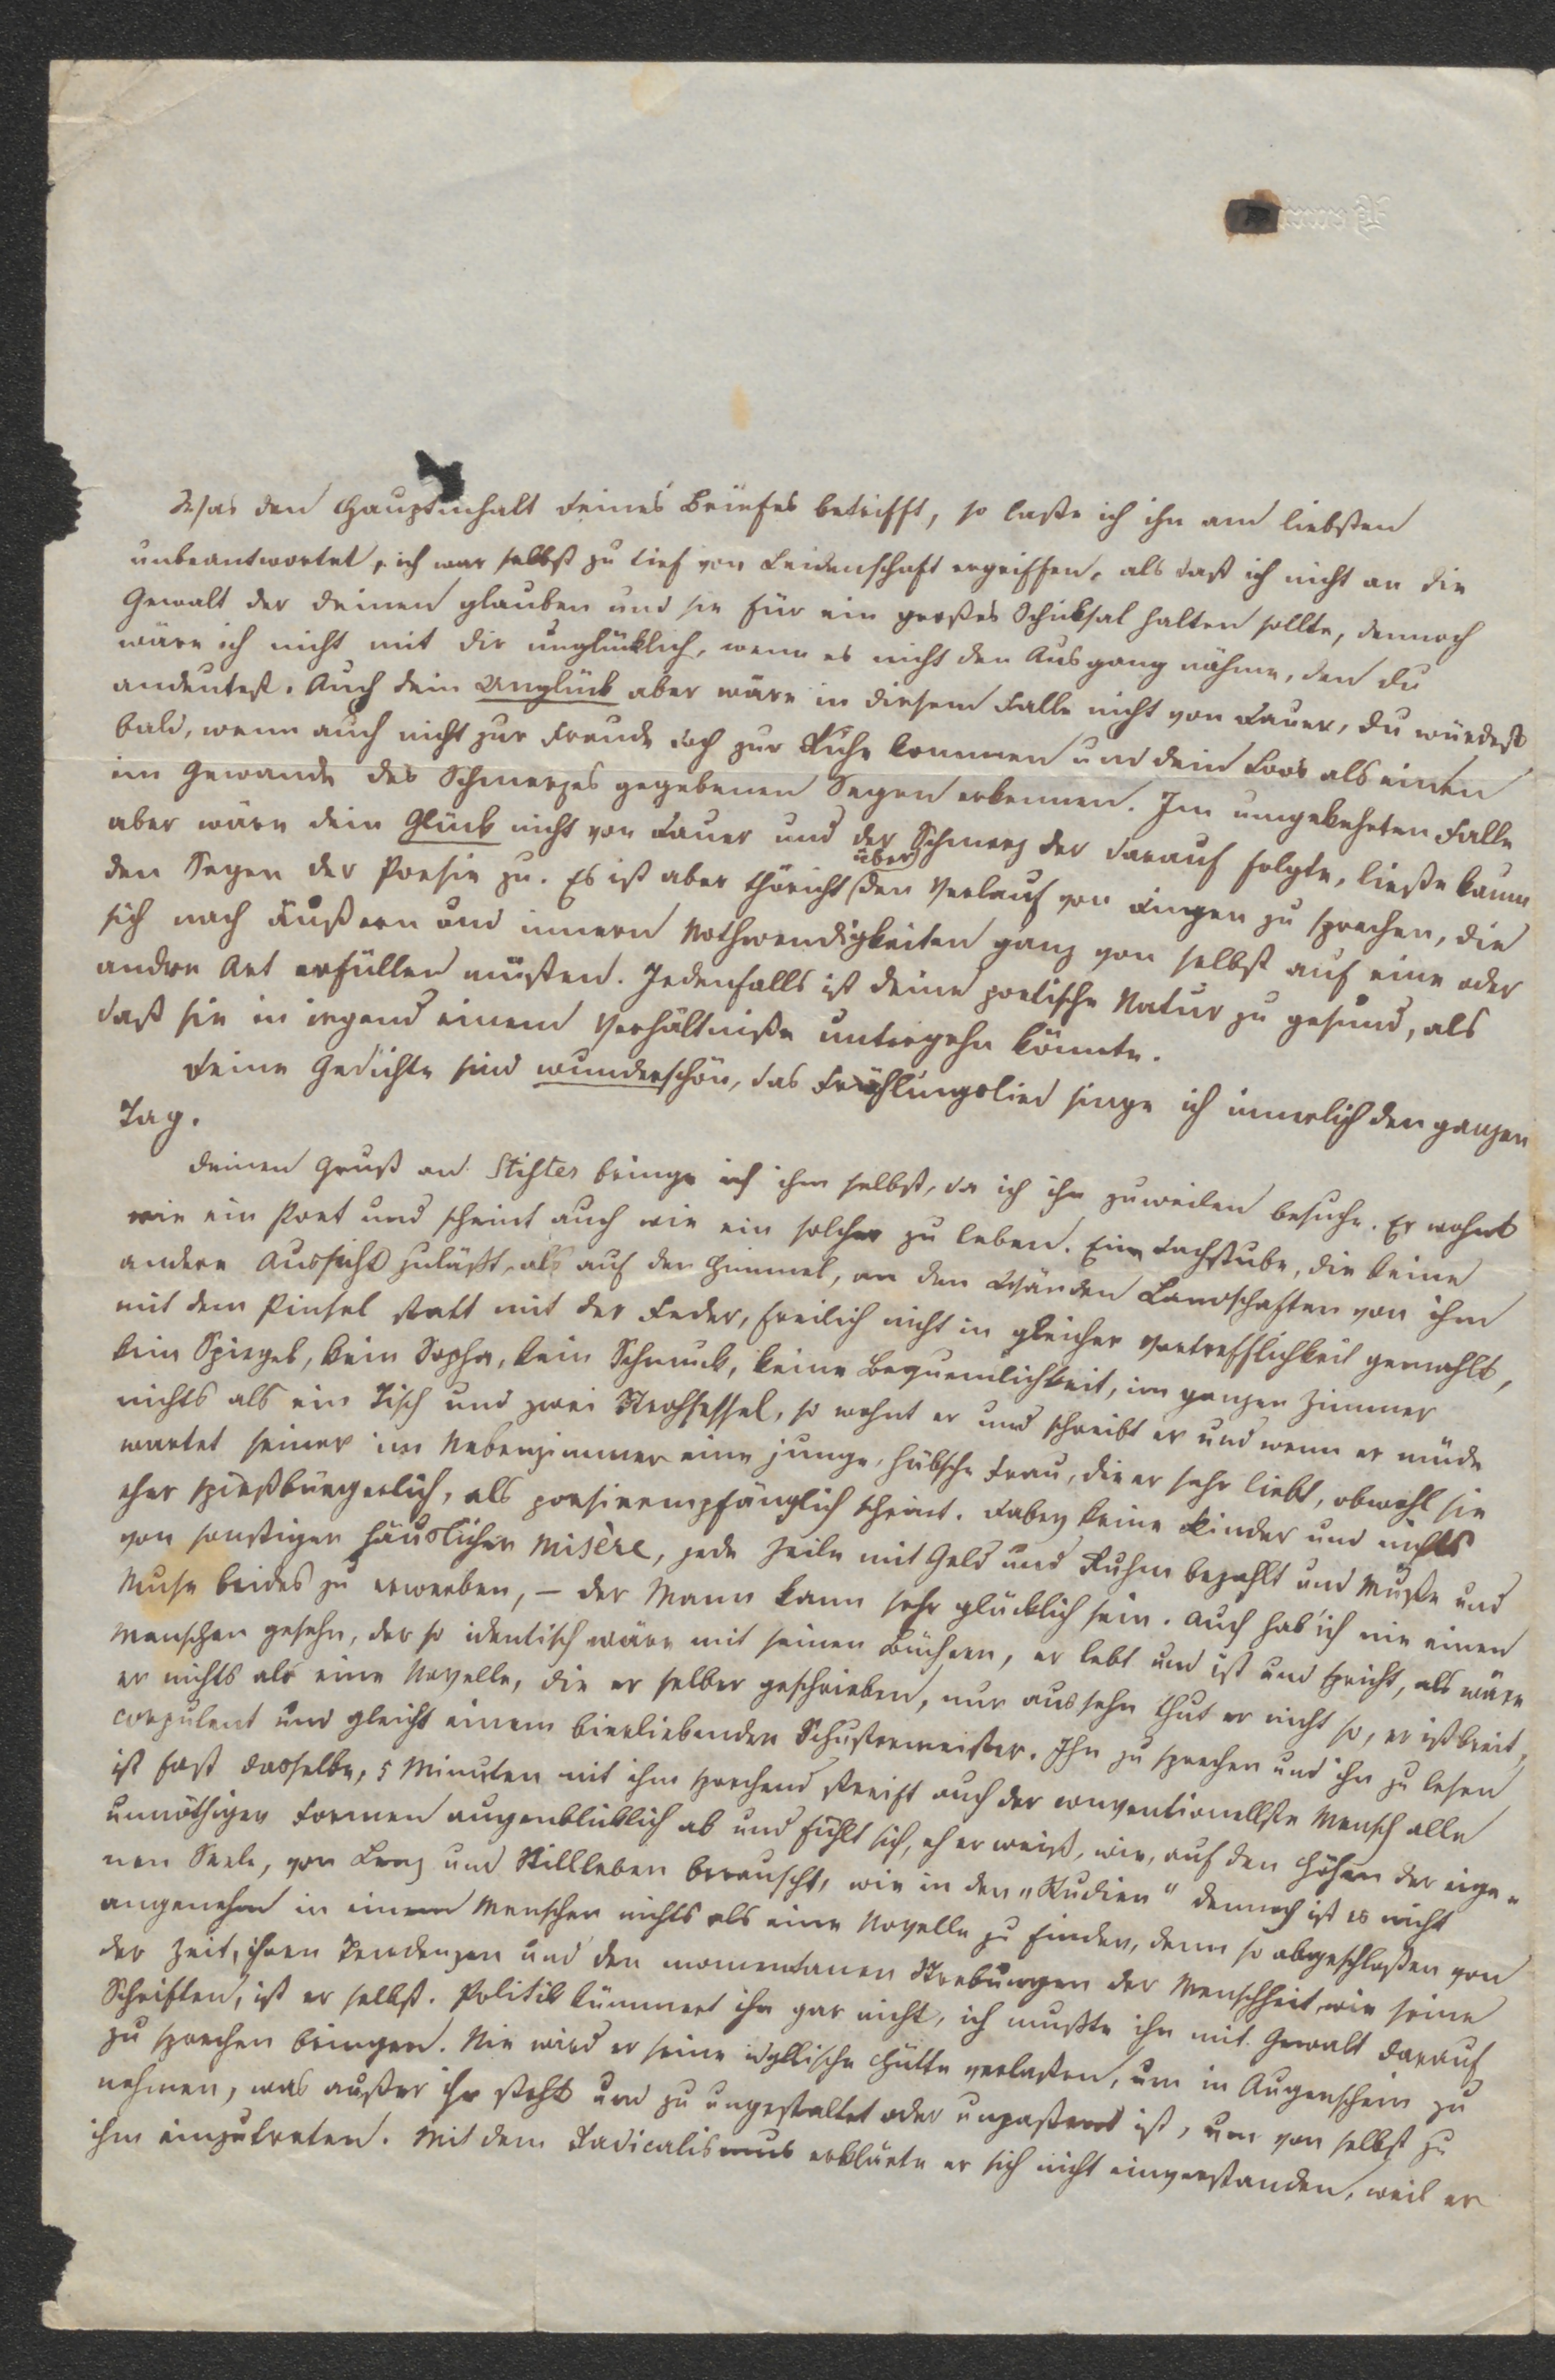 Was den Hauptinhalt deines Briefes betrifft, so laße ich ihn am liebsten
unbeantwortet, ich war selbst zu tief von Leidenschaft ergriffen, als daß ich nicht an die
Gewalt der deinen glauben und sie für ein großes Schiksal halten sollte, dennoch
wäre ich nicht mit dir unglücklich, wenn es nicht den Ausgang nähme, den du
andeutest. Auch dein Unglück aber wäre in diesem Falle nicht von Dauer, du würdest
bald, wenn auch nicht zur Freude doch zur Ruhe kommen und dein Loos als einen
im Gewande des Schmerzes gegebenen Segen erkennen. Im umgekehrten Falle
aber wäre dein Glück nicht von Dauer und der Schmerz der darauf folgte, ließe kaum
den Segen der Poesie zu. Es ist aber thöricht über den Verlauf von Dingen zu sprechen, die
sich nach äußern und innern Nothwendigkeiten ganz von selbst auf eine oder
andre Art erfüllen müßten. Jedenfalls ist deine poetische Natur zu gesund, als
daß sie in irgend einem Verhältniße untergehn könnte.
Deine Gedichte sind wunderschön, das Frühlingslied singe ich innerlich den ganzen
Tag.
Deinen Gruß an Stifter bringe ich ihm selbst, da ich ihn zuweilen besuche. Er wohnt
wie ein Poet und scheint auch wie ein solcher zu leben. Eine Dachstube, die keine
andere Aussicht zuläßt, als auf den Himmel, an den Wänden Landschaften von ihm
mit dem Pinsel statt mit der Feder, freilich nicht in gleicher Vortrefflichkeit gemahlt,
kein Spiegel, kein Sopha, kein Schmuck, keine Bequemlichkeit, im ganzen Zimmer
nichts als ein Tisch und zwei Strohsessel, so wohnt er und schreibt er und wenn er müde
wartet seiner im Nebenzimmer eine junge, hübsche Frau, die er sehr liebt, obwohl sie
eher spießbürgerlich, als poesieempfänglich scheint. Dabey keine Kinder und nichts
von sonstiger häuslicher Misère, jede Zeile mit Geld und Ruhm bezahlt und Muße und
Muse beides zu erwerben, – der Mann kann sehr glücklich sein. Auch hab' ich nie einen
Menschen gesehn, der so identisch wäre mit seinen Büchern, er lebt und ist und spricht, als wäre
er nichts als eine Novelle, die er selber geschrieben, nur aussehn thut er nicht so, er ist breit,
corpulent und gleicht einem bierliebenden Schustermeister. Ihn zu sprechen und ihn zu lesen
ist fast dasselbe, 5 Minuten mit ihm sprechend streift auch der conventionellste Mensch alle
unnöthigen Formen augenblicklich ab und fühlt sich, eh er weiß, wie, auf den Höhen der eige-
nen Seele, von Lenz und Stillleben berauscht, wie in den „Studien" dennoch ist es nicht
angenehm in einem Menschen nichts als eine Novelle zu finden, denn so abgeschloßen von
der Zeit, ihren Tendenzen und den momentanen Strebungen der Menschheit, wie seine
Schriften, ist er selbst. Politik kümmert ihn gar nicht, ich mußte ihn mit Gewalt darauf
zu sprechen bringen. Nie wird er seine idyllische Hütte verlaßen, um in Augenschein zu
nehmen, was außer ihr steht und zu ungestaltet oder unpaßend ist, um von selbst zu
ihm einzutreten. Mit dem Radicalismus erklärte er sich nicht einverstanden, weil er